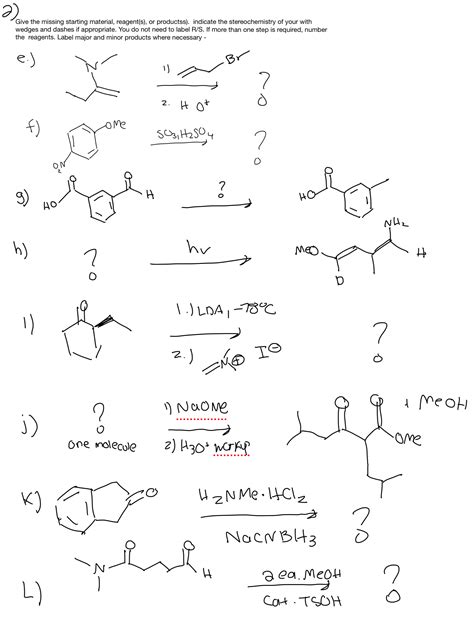 2)
Give the missing starting material, reagent(s), or productss). indicate the stereochemistry of your with
wedges and dashes if appropriate. You do not need to label R/S. If more than one step is required, number
the reagents. Label major and minor products where necessary -
e.) N 1) Br ?
2. H O+
f) OMe SO3, H2SO4 ?
O2N
g) HO O O H ? HO O
h) ? hv MeO D NH2 H
i) O 1.) LDA, -78°C ?
2.) N⊕ I⊖
j) ? 1) NaOMe O O OMe + MeOH
one molecule 2) H3O+ workup
K) O H2NMe·HCl2 ?
NaCNBH3
L) N O O H 2 eq. MeOH ?
Cat. TSOH